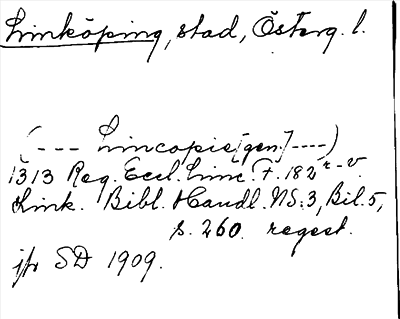 Linköping, stad, Österg. l.
(--- Lincopie[gen] ----)
1313 Reg. Eccl. Linc. F. 182 r-v.
Link. Bibl. Handl. NS:3, Bil. 5,
s. 260. regest.
jfr SD 1909.